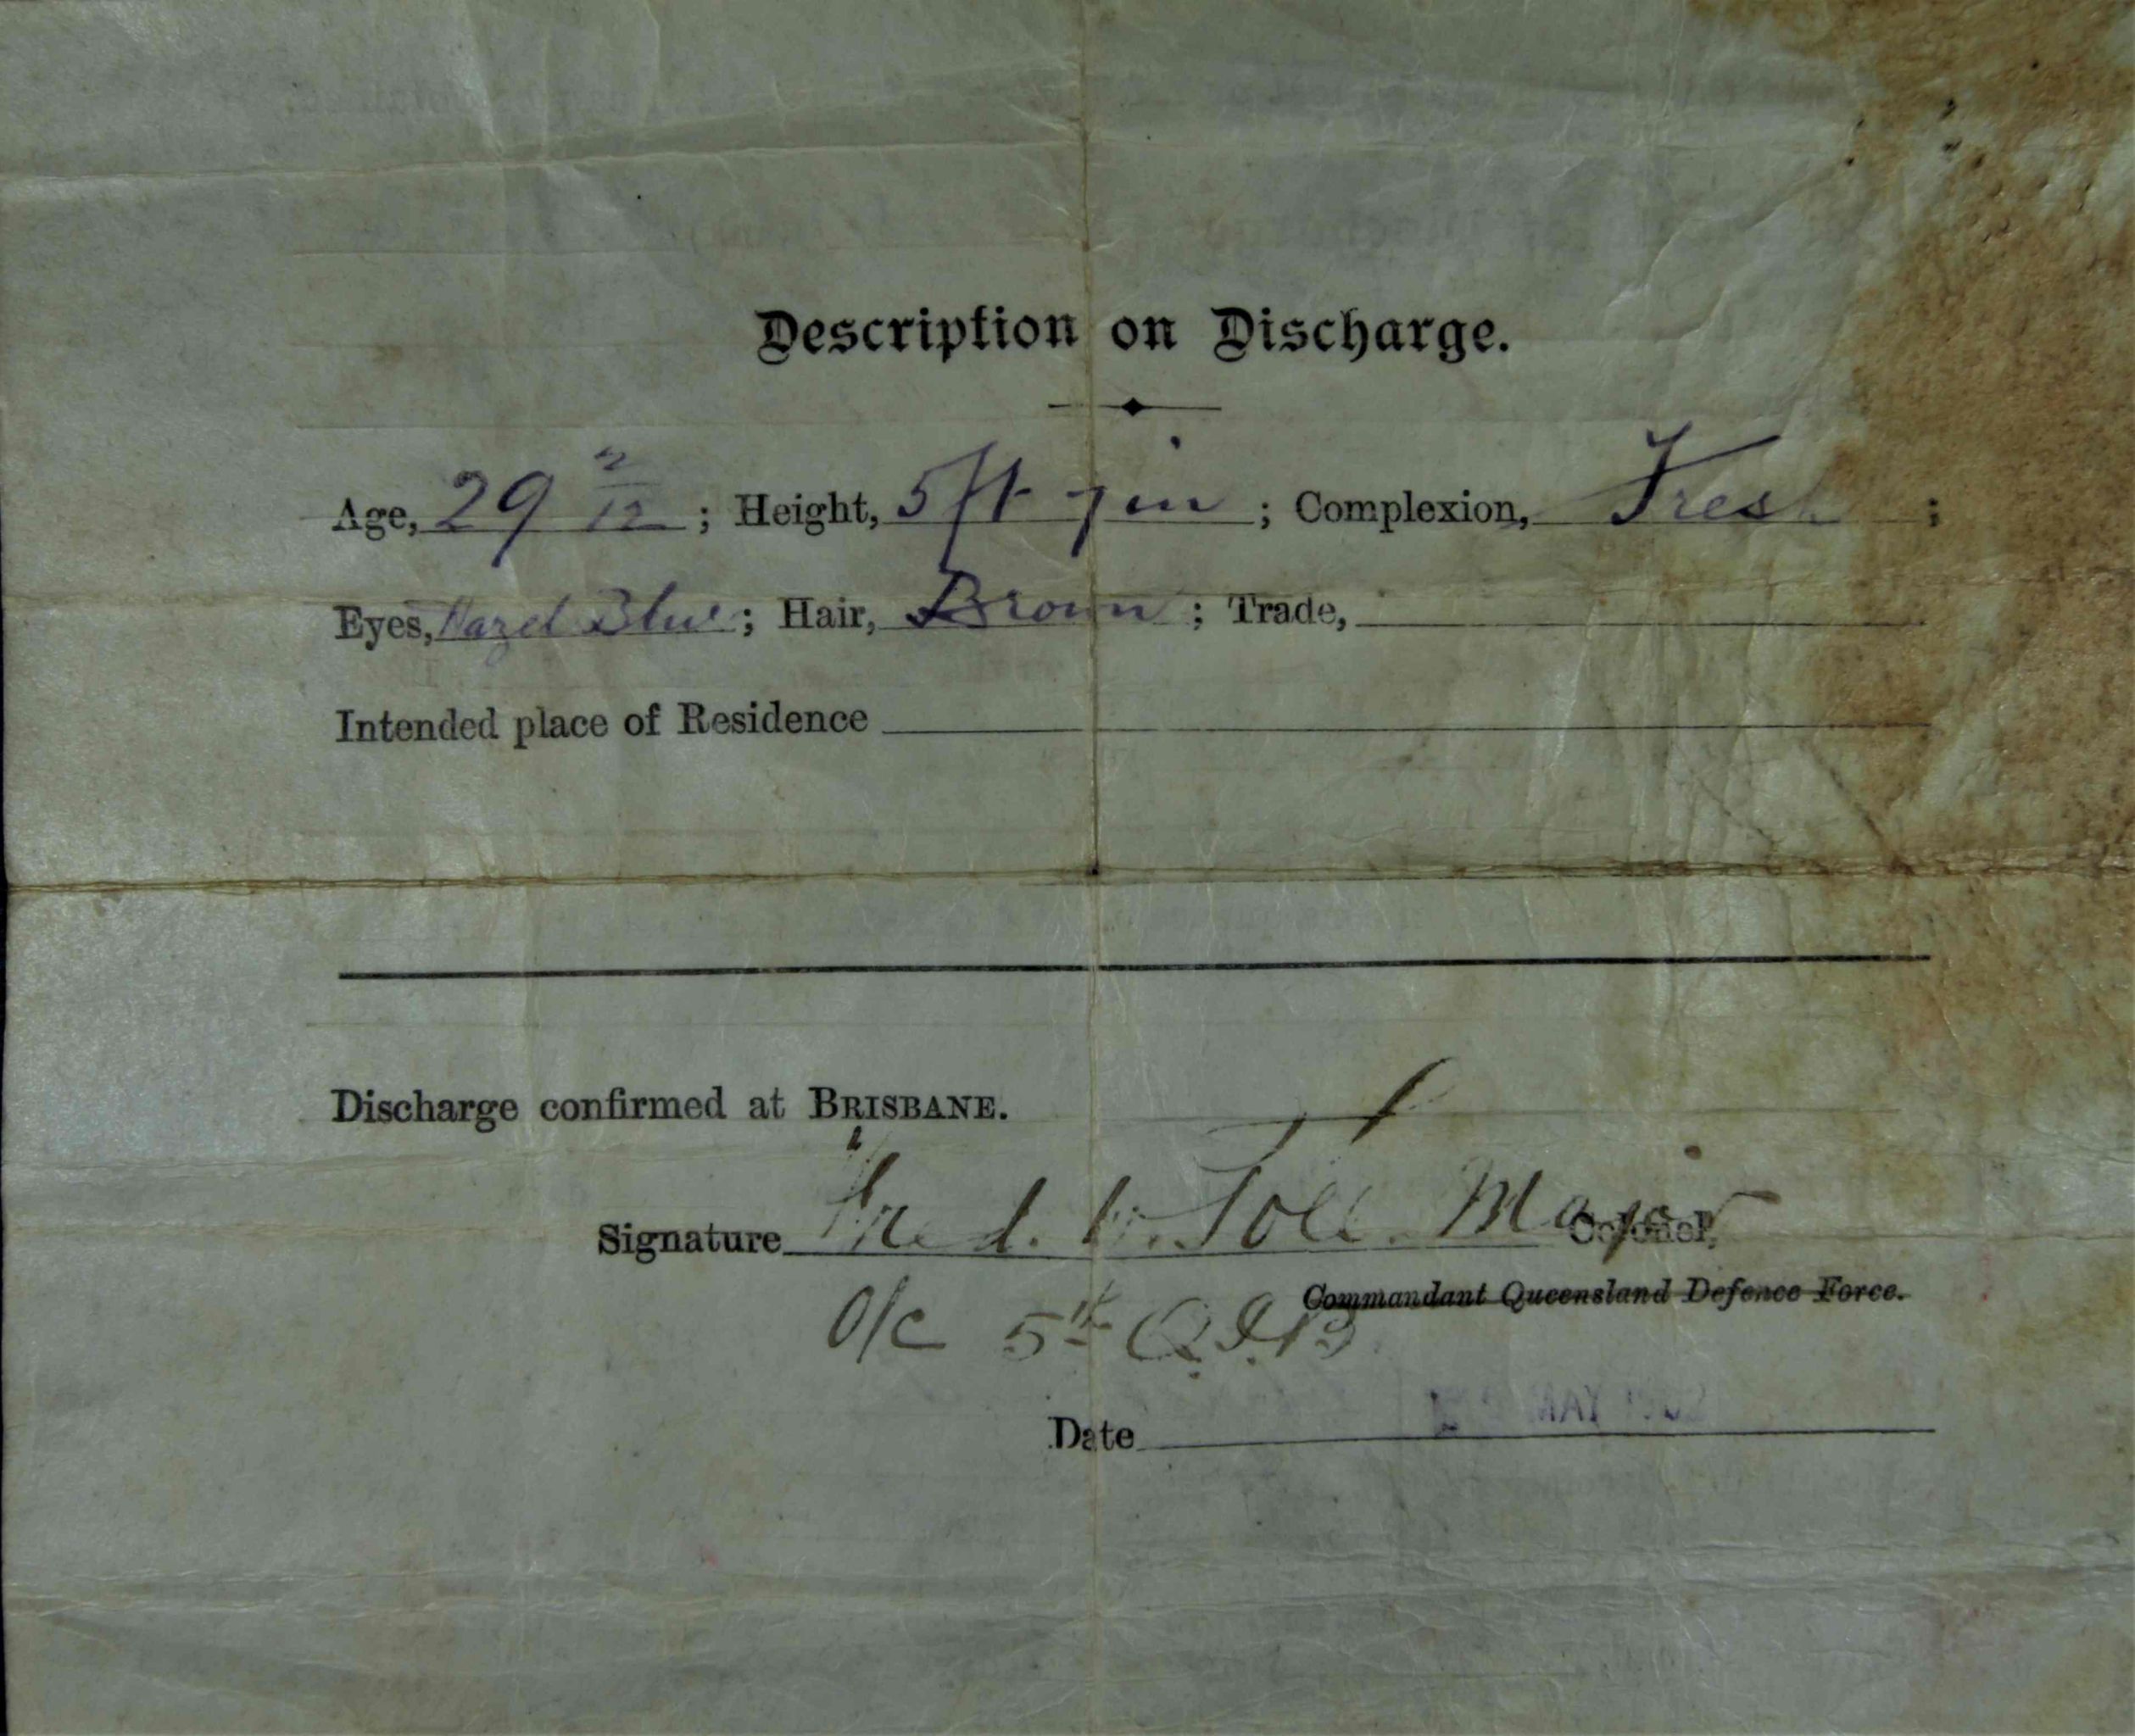 Description on Discharge.
Age, 29 2/12 ; Height, 5ft 7in ; Complexion, Fresh ;
Eyes, Hazel Blue ; Hair, Brown ; Trade,
Intended place of Residence
Discharge confirmed at BRISBANE.
Signature Fred. W. Toll. Major Colonel,
Commandant Queensland Defence Force.
O/C 5th Q.I.B.
MAY 1902
Date